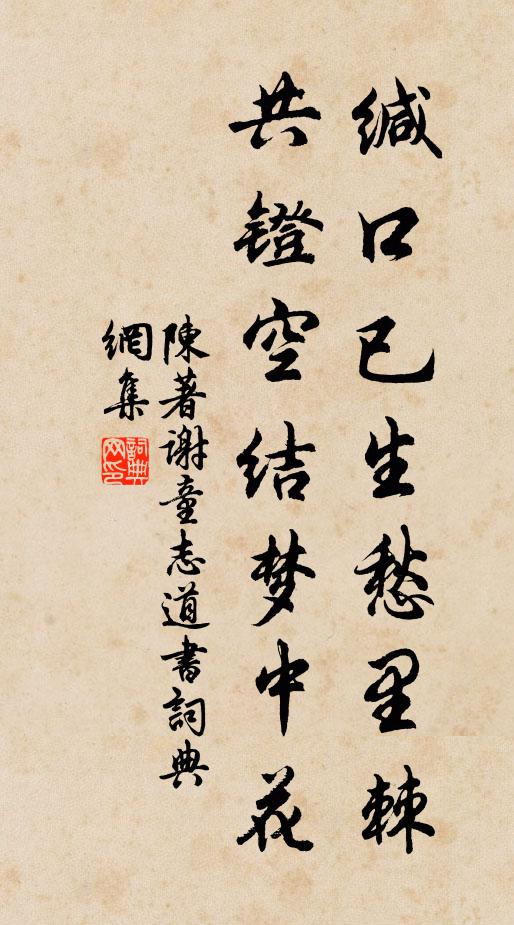 缄口已生愁里棘
共镫空结梦中花
陳著謝童志道書詞典
網集
詞典网印